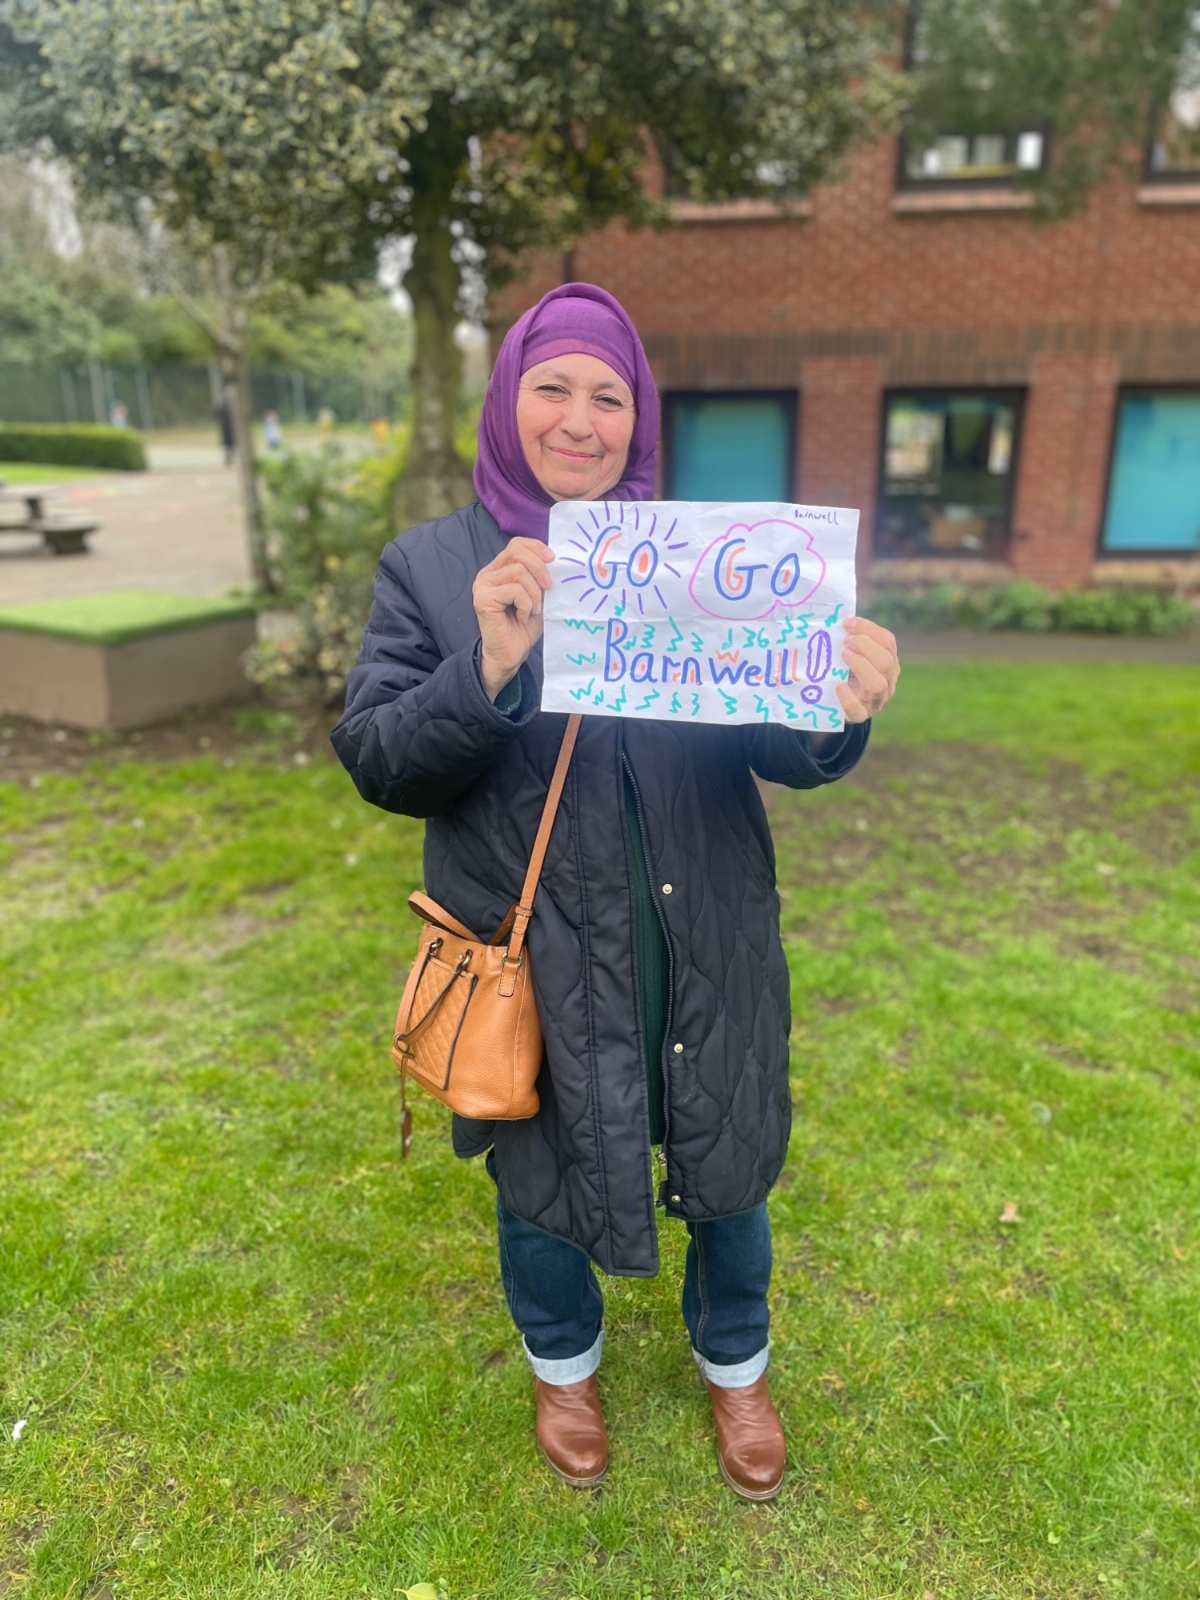 Barnwell
GO GO
Barnwell!